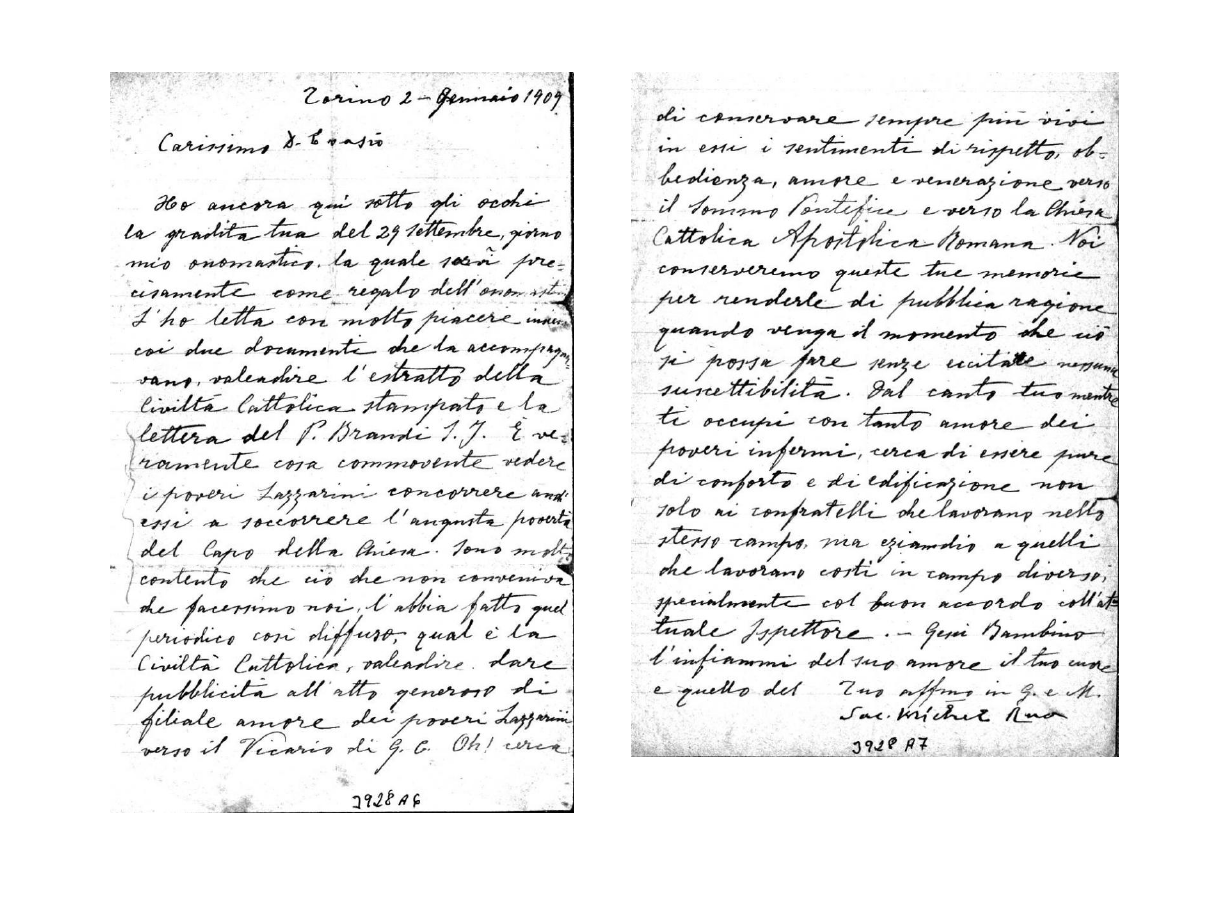 Torino 2 - Gennaio 1909
Carissimo D. Evasio
Ho ancora qui sotto gli occhi
la gradita tua del 29 settembre, giorno
mio onomastico. la quale sarà pre=
cisamente come regalo dell'onomast
L'ho letta con molto piacere insiem
coi due documenti che la accompagna-
vano, valeadire l'estratto della
Civiltà Cattolica stampato e la
lettera del P. Brandi S. J. È ve=
ramente cosa commovente vedere
i poveri Lazzarini concorrere anch'
essi a soccorrere l'augusta povertà
del Capo della Chiesa. Sono molto
contento che ciò che non conveniva
che facessimo noi, l'abbia fatto quel
periodico così diffuso, qual è la
Civiltà Cattolica, valeadire dare
pubblicità all'atto generoso di
filiale amore dei poveri Lazzarini
verso il Vicario di G. C. Oh! cerca
J928 A6
di conservare sempre più vivi
in essi i sentimenti di rispetto, ob=
bedienza, amore e venerazione verso
il Sommo Pontefice e verso la Chiesa
Cattolica Apostolica Romana. Noi
conserveremo queste tue memorie
per renderle di pubblica ragione
quando venga il momento che ciò
si possa fare senze eccitare nessuna
suscettibilità. Dal canto tuo mentre
ti occupi con tanto amore dei
poveri infermi, cerca di essere pure
di conforto e di edificazione non
solo ai confratelli che lavorano nello
stesso campo, ma eziandio a quelli
che lavorano costì in campo diverso,
specialmente col buon accordo coll'at=
tuale Ispettore. - Gesù Bambino
l'infiammi del suo amore il tuo cuore
e quello del Tuo affmo in G. e M.
Sac. Michel Rua
J928 A7